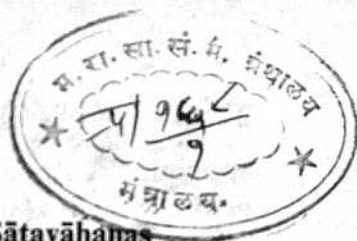 म. रा. सा. सं. मं. ग्रंथालय
मंत्रालय.
Sātavāhanas